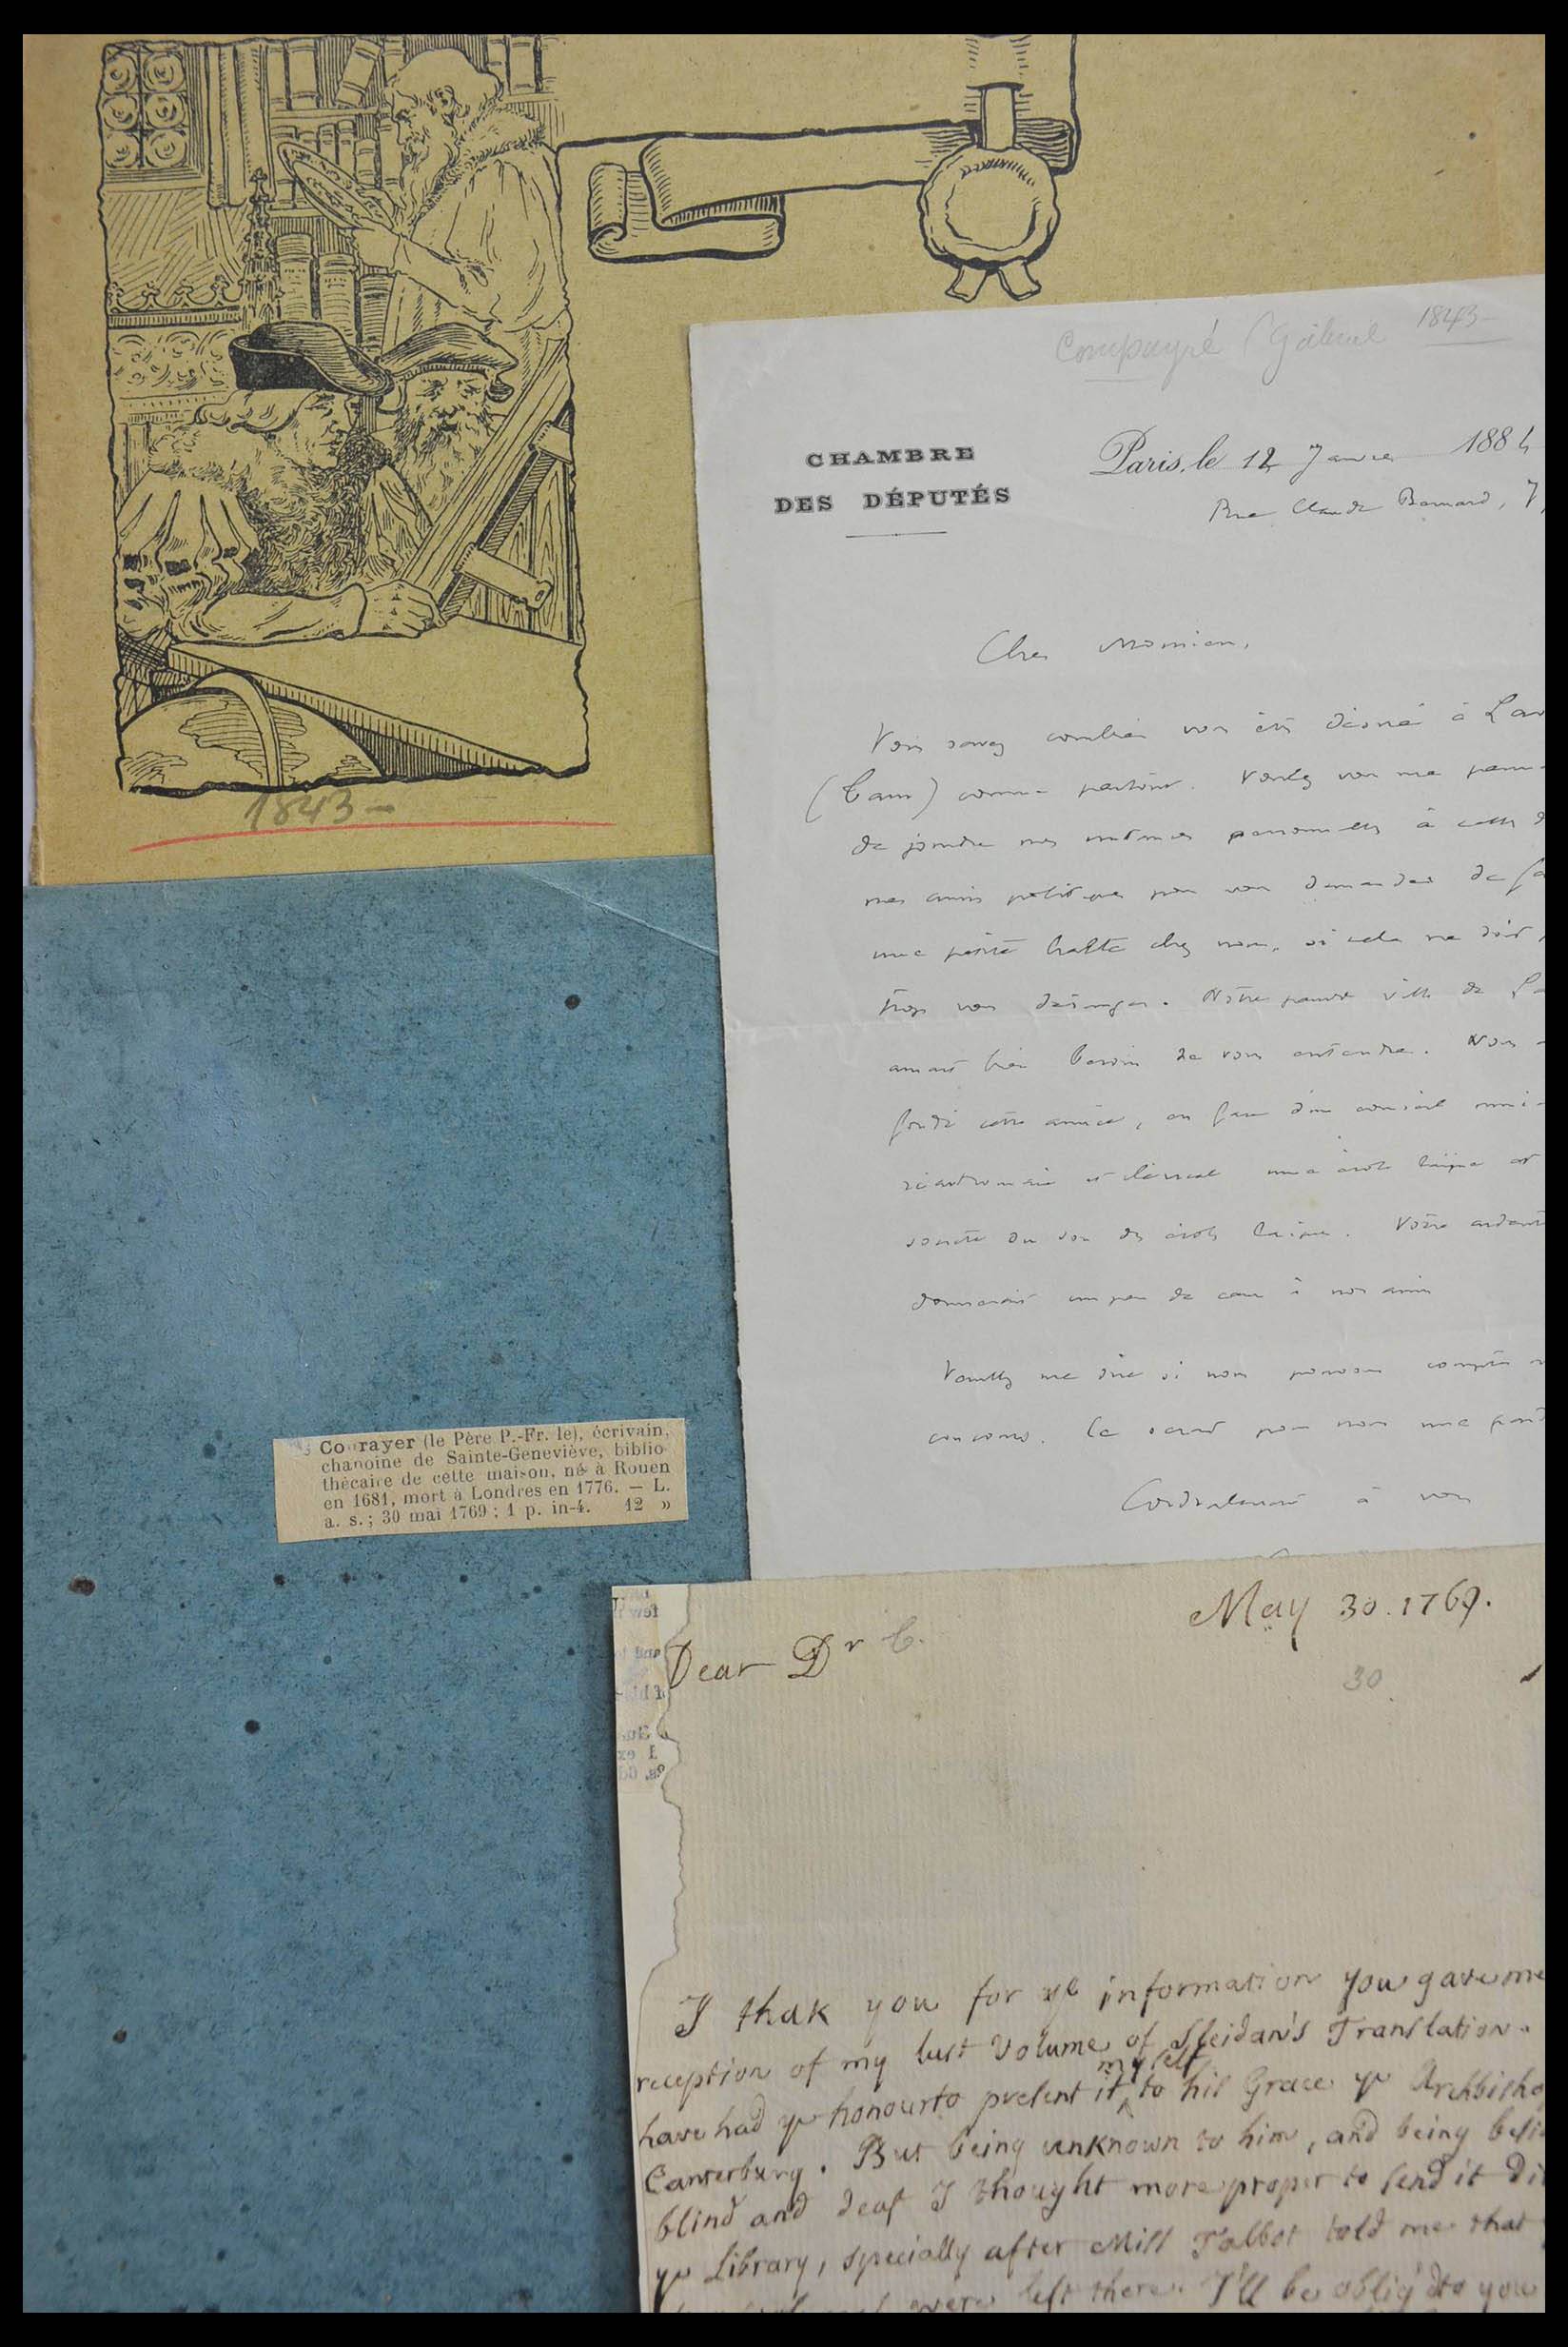 1843-
Compayré (Gabriel 1843-
CHAMBRE
DES DÉPUTÉS
Paris, le 12 Janvier 1884
Rue Claude Bernard, 7
Cher Monsieur,
Vous savez combien vous êtes désiré à Lav
(Tarn) comme partout. Voulez vous me perm-
de joindre mes instances personnelles à celles d
mes amis politiques pour vous demander de fa
une petite halte chez nous, si cela ne doit
trop vous déranger. Notre pauvre ville de La
aurait bien besoin de vous entendre. Nous
fondé cette année, en face d'un conseil muni-
réactionnaire et clérical une école laïque et
société du sou des écoles laïques. Votre
donnerait un peu de cœur à nos amis
Veuillez me dire si nous pouvons compter
concours. Ce serait pour nous une
Cordialement à vous
Courayer (le Père P.-Fr. le), écrivain,
chanoine de Sainte-Geneviève, biblio-
thécaire de cette maison, né à Rouen
en 1681, mort à Londres en 1776. — L.
a. s.; 30 mai 1769; 1 p. in-4. 12 »
May 30. 1769.
Dear Dr C.
30
I thak you for ye information you gave me
reception of my last Volume of Sleidan's Translation.
have had ye honour to present it myself to his Grace ye Archbisho
Canterbury. But being unknown to him, and being besi
blind and deaf I thought more proper to send it Di
ye Library, specially after Miss Talbot told me that
were left there. I'll be oblig'd to you